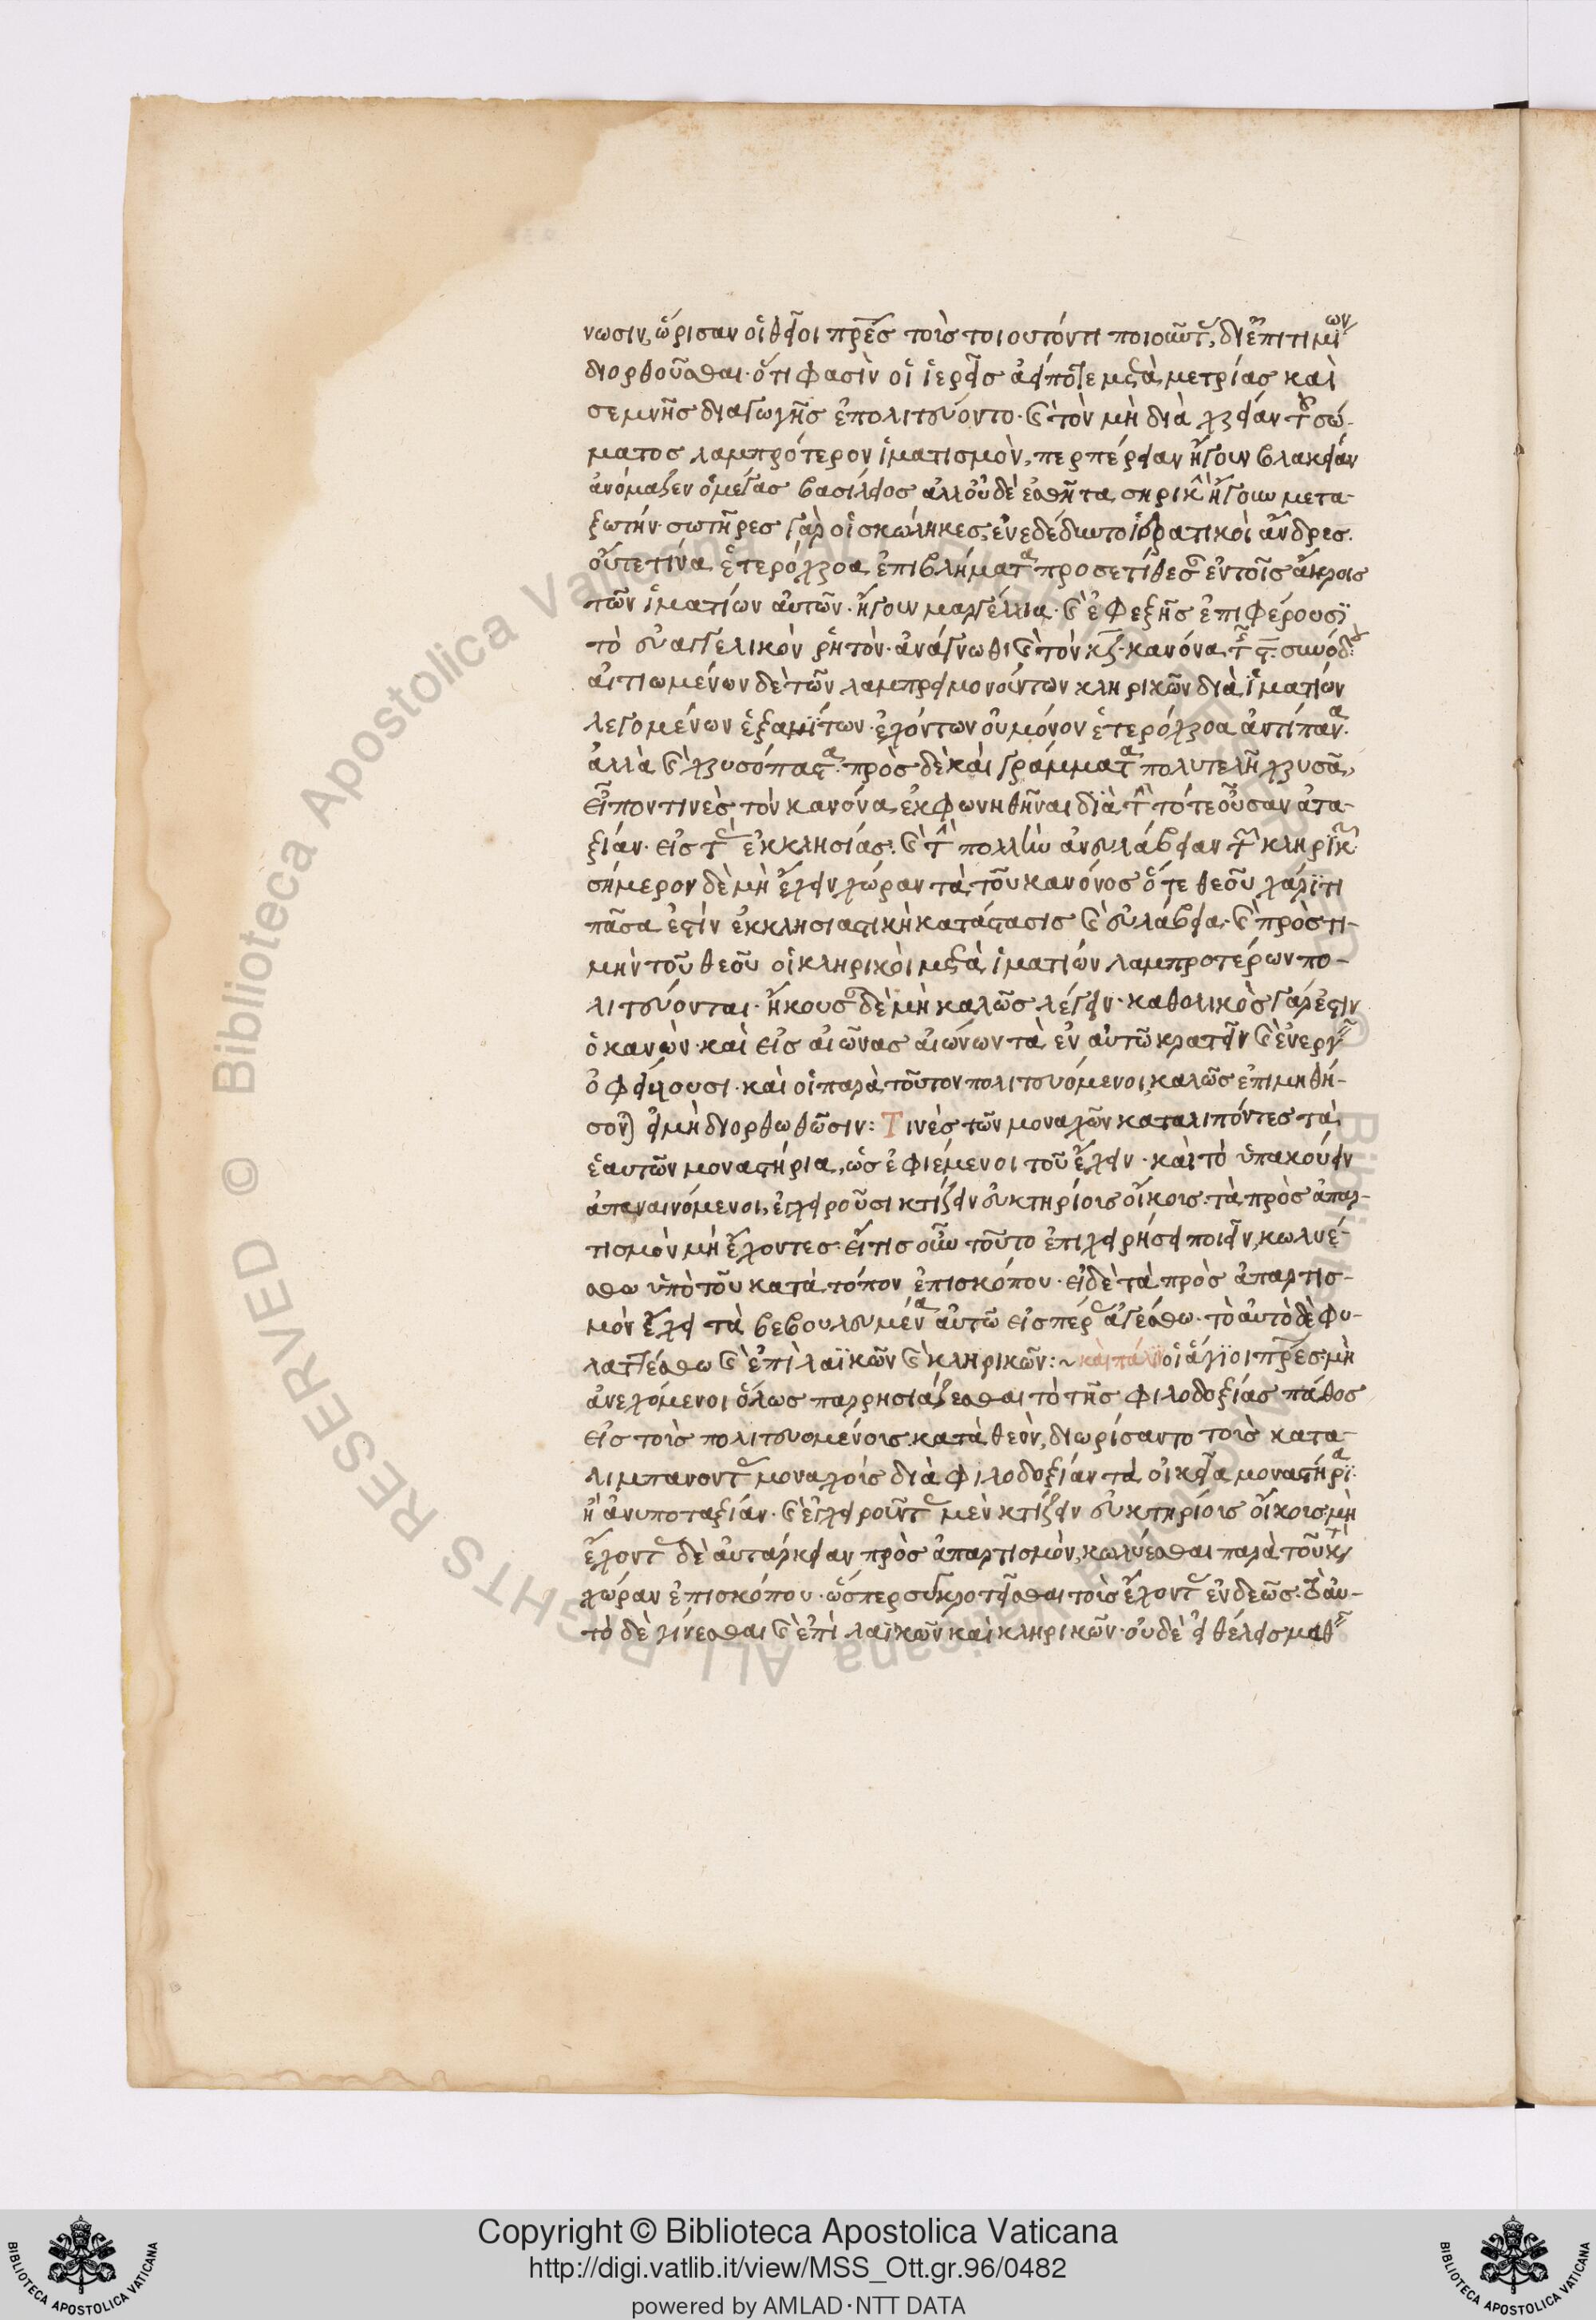 νωσιν, ὥρισαν οἱ θεῖοι πρ̅ε̅ς τοὺς τοιοῦτόν τι ποιοῦντ, δι' ἐπιτιμίων
διορθοῦσθαι· ὅτι φασὶν οἱ ἱερεῖς ἀείποτε μετὰ μετρίας καὶ
σεμνῆς διαγωγῆς ἐπολιτεύοντο· καὶ τὸν μὴ διὰ χρείαν τοῦ σώ-
ματος λαμπρότερον ἱματισμὸν, περπέρειαν ἤγουν βλακείαν
ὠνόμαζεν ὁ μέγας βασίλειος ἀλλ' οὐδὲ ἐσθῆτα σηρικὴν ἤγουν μετα-
ξωτὴν· σωτῆρες γὰρ οἱ σκώληκες, ἐνεδέδυντο ἱερατικοὶ ἄνδρες.
οὔτε τινὰ ἑτερόχροα ἐπιβλήματα προσετίθεσαν ἐν τοῖς ἄκροις
τῶν ἱματίων αὐτῶν· ἤγουν μαργέλλια· καὶ ἐφεξῆς ἐπιφέρουσι
τὸ εὐαγγελικὸν ῥητὸν· ἀνάγνωθι καὶ τὸν κζ· κανόνα τῆς ϛ̅ συνόδου
αἰτιωμένων δὲ τῶν λαμπρειμονούντων κληρικῶν διὰ ἱματίων
λεγομένων ἑξαμίτων· ἐχόντων οὐ μόνον ἑτερόχροα ἀντίπανα·
ἀλλὰ καὶ χρυσόπαστα· πρὸς δὲ καὶ γράμματα πολυτελῆ χρυσᾶ,
εἶπον τινὲς τὸν κανόνα ἐκφωνηθῆναι διὰ τὴν τότε οὖσαν ἀτα-
ξίαν· εἰς τὰς ἐκκλησίας· καὶ τὴν πολλὴν ἀνευλάβειαν τῶν κληρικῶν
σήμερον δὲ μὴ ἔχειν χώραν τὰ τοῦ κανόνος ὅτε θεοῦ χάριτι
πᾶσα ἐστὶν ἐκκλησιαστικὴ κατάστασις καὶ εὐλάβεια· καὶ πρὸς τι-
μὴν τοῦ θεοῦ οἱ κληρικοὶ μετὰ ἱματίων λαμπροτέρων πο-
λιτεύονται· ἤκουσαν δὲ μὴ καλῶς λέγειν· καθολικὸς γάρ ἐστιν
ὁ κανὼν· καὶ εἰς αἰῶνας αἰώνων τὰ ἐν αὐτῶ κρατεῖν καὶ ἐνεργεῖν
ὀφείλουσι· καὶ οἱ παρὰ τοῦτον πολιτευόμενοι, καλῶς ἐπιμηθή-
σονται εἰ μὴ διορθωθῶσιν: Τινὲς τῶν μοναχῶν καταλιπόντες τὰ
ἑαυτῶν μοναστήρια, ὡς ἐφιέμενοι τοῦ ἔχειν· καὶ τὸ ὑπακούειν
ἀπαναινόμενοι, ἐγχειροῦσι κτίζειν εὐκτηρίους οἴκους· τὰ πρὸς ἀπαρ-
τισμὸν μὴ ἔχοντες· εἴ τις οὖν τοῦτο ἐπιχειρήσει ποιεῖν, κωλυέ-
σθω ὑπὸ τοῦ κατὰ τόπον ἐπισκόπου· εἰ δὲ τὰ πρὸς ἀπαρτισ-
μὸν ἔχει τὰ βεβουλευμένα αὐτῶ εἰς πέρας ἀγέσθω· τὸ αὐτὸ δὲ φυ-
λαττέσθω καὶ ἐπὶ λαϊκῶν καὶ κληρικῶν:~ καὶ πάλιν οἱ ἅγιοι πρ̅ε̅ς μὴ
ἀνεχόμενοι ὅλως παρρησιάζεσθαι τὸ τῆς φιλοδοξίας πάθος
εἰς τοὺς πολιτευομένους κατὰ θεὸν, διωρίσαντο τοὺς κατα-
λιμπάνοντας μοναχοὺς διὰ φιλοδοξίαν τὰ οἰκεῖα μοναστήρια·
ἢ ἀνυποταξίαν· καὶ ἐγχειροῦντας μὲν κτίζειν εὐκτηρίους οἴκους μὴ
ἔχοντας δὲ αὐτάρκειαν πρὸς ἀπαρτισμὸν, κωλύεσθαι παρὰ τοῦ κατὰ
χώραν ἐπισκόπου· ὥσπερ συγκροτεῖσθαι τοὺς ἔχοντας ἐνδεῶς· τὸ αὐ-
τὸ δὲ γίνεσθαι καὶ ἐπὶ λαϊκῶν καὶ κληρικῶν· οὐδὲ εἰ θέλεις μαθεῖν
Copyright © Biblioteca Apostolica Vaticana
http://digi.vatlib.it/view/MSS_Ott.gr.96/0482
powered by AMLAD·NTT DATA
BIBLIOTECA APOSTOLICA VATICANA
BIBLIOTECA APOSTOLICA VATICANA